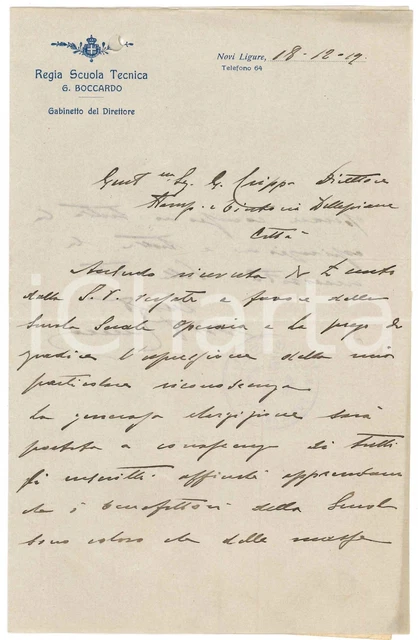 Regia Scuola Tecnica
G. BOCCARDO
Gabinetto del Direttore
Novi Ligure, 18-12-19.
Telefono 64
Gent.mo Sig. G. Crippa Direttore
Stamp. e Tintoria Dellepiane
Città
Accludo ricevuta di £ cento
dalla S.V. versate a favore della
Scuola Serale Operaia e La prego di
gradire l'espressione della mia
particolare riconoscenza
La generosa elargizione sarà
portata a conoscenza di tutti
gli iscritti affinché apprendano
che i benefattori della Scuola
sono coloro che dalle masse
iCharta